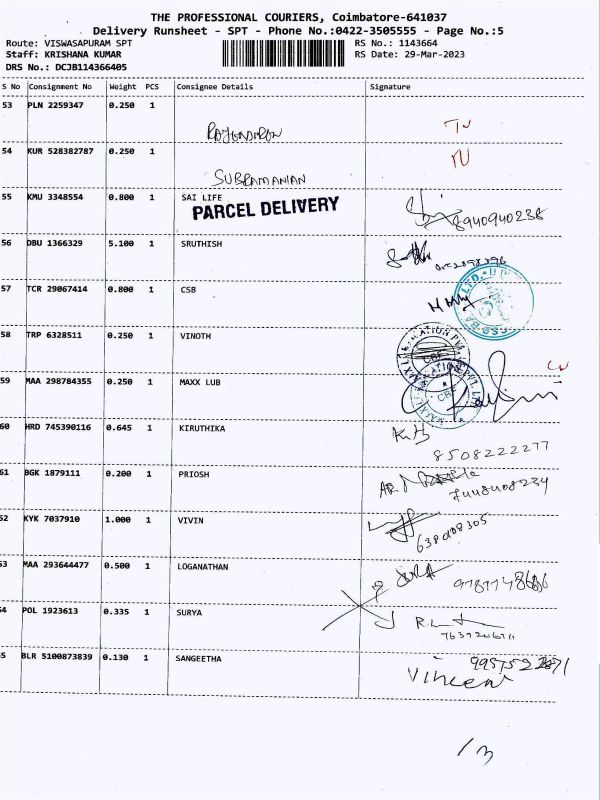 THE PROFESSIONAL COURIERS, Coimbatore-641037
Delivery Runsheet - SPT - Phone No.:0422-3505555 - Page No.:5
Route: VISWASAPURAM SPT RS No.: 1143664
Staff: KRISHANA KUMAR RS Date: 29-Mar-2023
DRS No.: DCJB114366405
S No Consignment No Weight PCS Consignee Details Signature
53 PLN 2259347 0.250 1
54 KUR 528382787 0.250 1
SUBRAMANIAN
55 KMU 3348554 0.800 1 SAI LIFE
PARCEL DELIVERY
8940940238
56 DBU 1366329 5.100 1 SRUTHISH
57 TCR 29067414 0.800 1 CSB
58 TRP 6328511 0.250 1 VINOTH
59 MAA 298784355 0.250 1 MAXX LUB
60 HRD 745390116 0.645 1 KIRUTHIKA
8508222277
61 BGK 1879111 0.200 1 PRIOSH
7448408234
52 KYK 7037910 1.000 1 VIVIN
53 MAA 293644477 0.500 1 LOGANATHAN
54 POL 1923613 0.335 1 SURYA
55 BLR 5100873839 0.130 1 SANGEETHA
Vincent